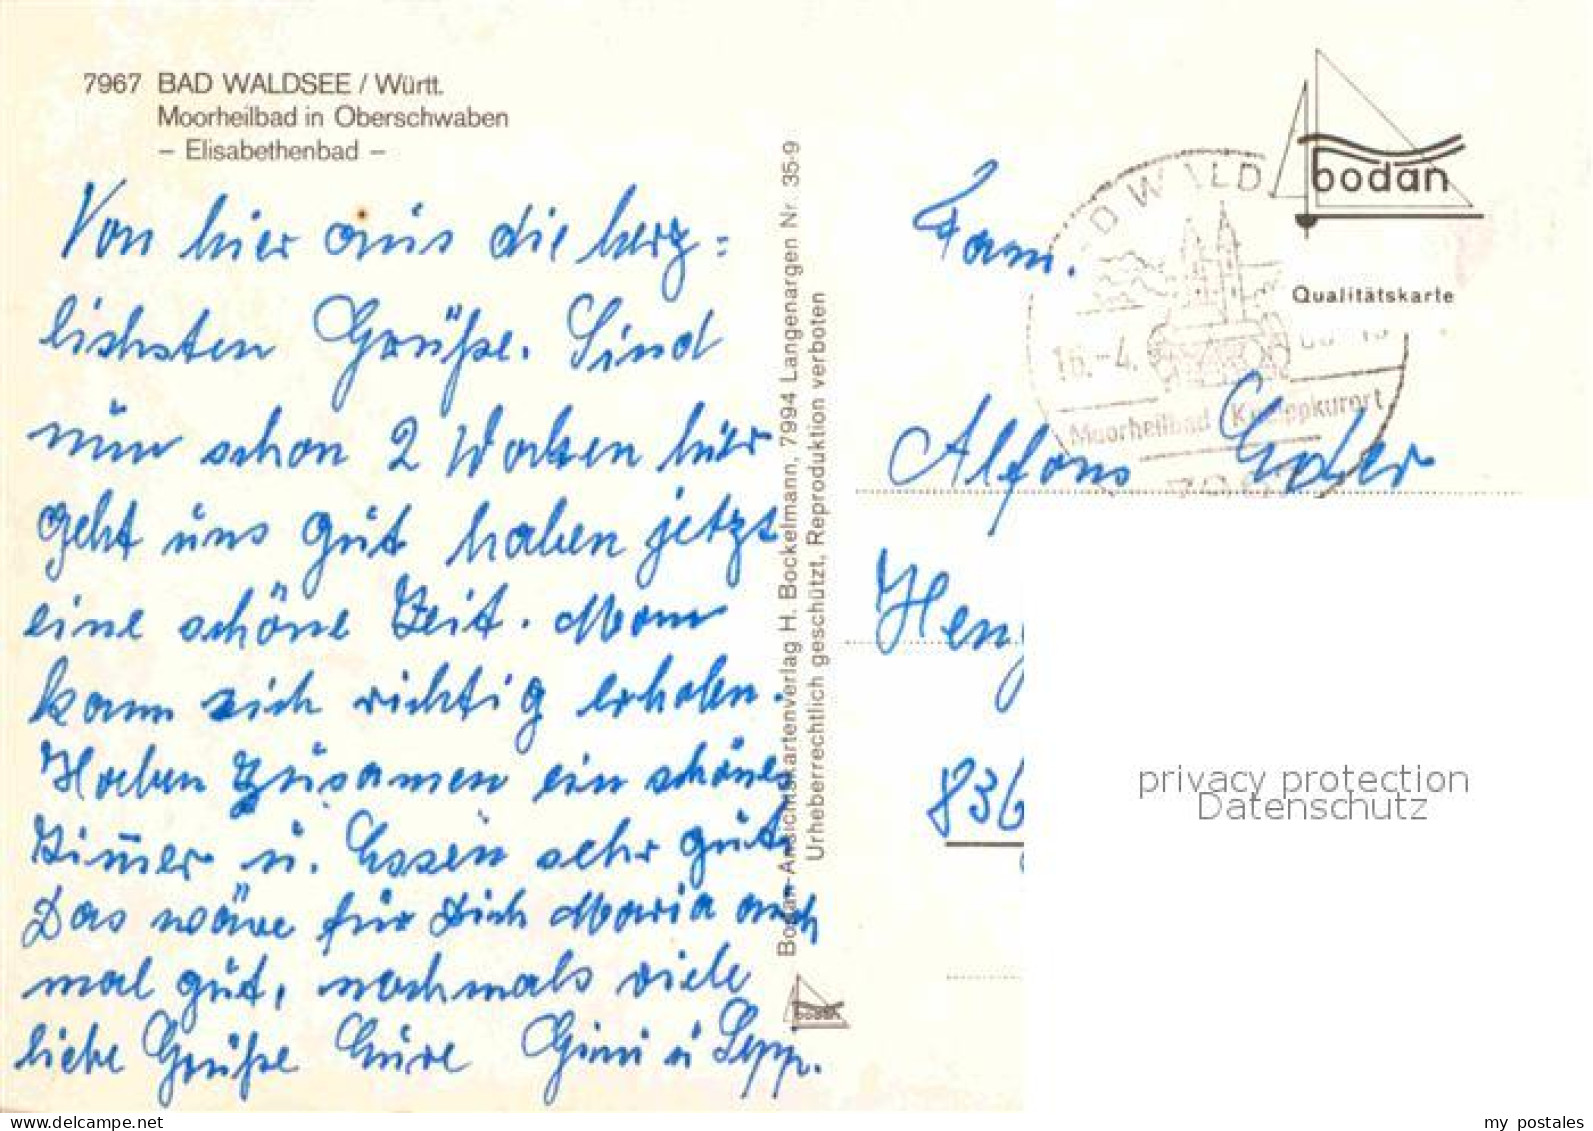 7967 BAD WALDSEE / Württ.
Moorheilbad in Oberschwaben
– Elisabethenbad –
Von hier aus die herz=
lichsten Grüße. Sind
nun schon 2 Wochen hier
geht uns gut haben jetzt
eine schöne Zeit. Mann
kann sich richtig erholen.
Haben Zusamen ein schönes
Zim̄er u. Essen sehr gut,
Das wäre für Dich Maria auch
mal gut, nochmals viele
liebe Grüße Eure Gini u Sepp.
Bodan-Ansichtskartenverlag H. Bockelmann, 7994 Langenargen Nr. 35-9
Urheberrechtlich geschützt, Reproduktion verboten
bodan
bodan
Qualitätskarte
D WALD
16.-4.
Moorheilbad Kneippkurort
Fam.
Alfons
Heng
836
privacy protection
Datenschutz
my postales